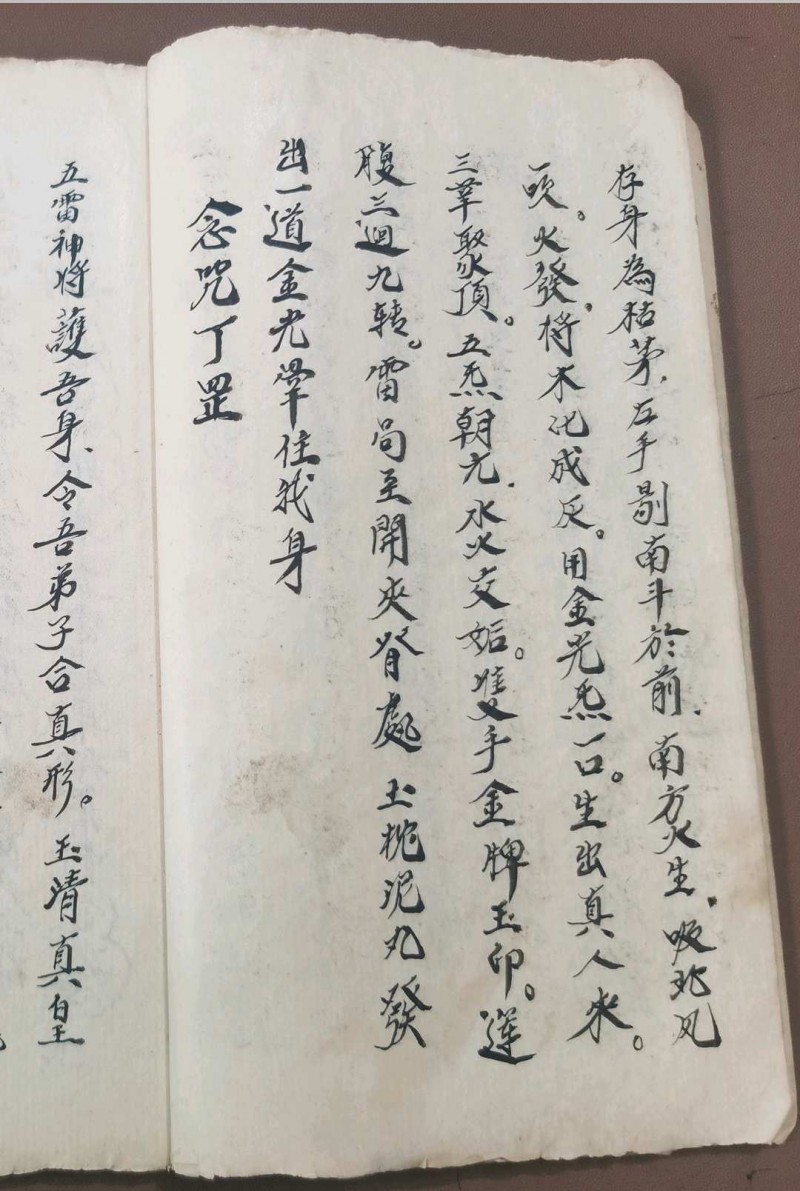 存身為枯茅，左手剔南斗於前，南方火生，吸北风
一吹。火發，将木化成灰。用金光炁一口。生出真人来。
三華聚頂。五炁朝元，水火交姤。雙手金牌玉印。運
腹三迴九转。雷局至開夾脊處 玉枕泥丸 發
出一道金光罩住我身
念咒丁罡
五雷神将護吾身、令吾弟子合真形。玉清真皇